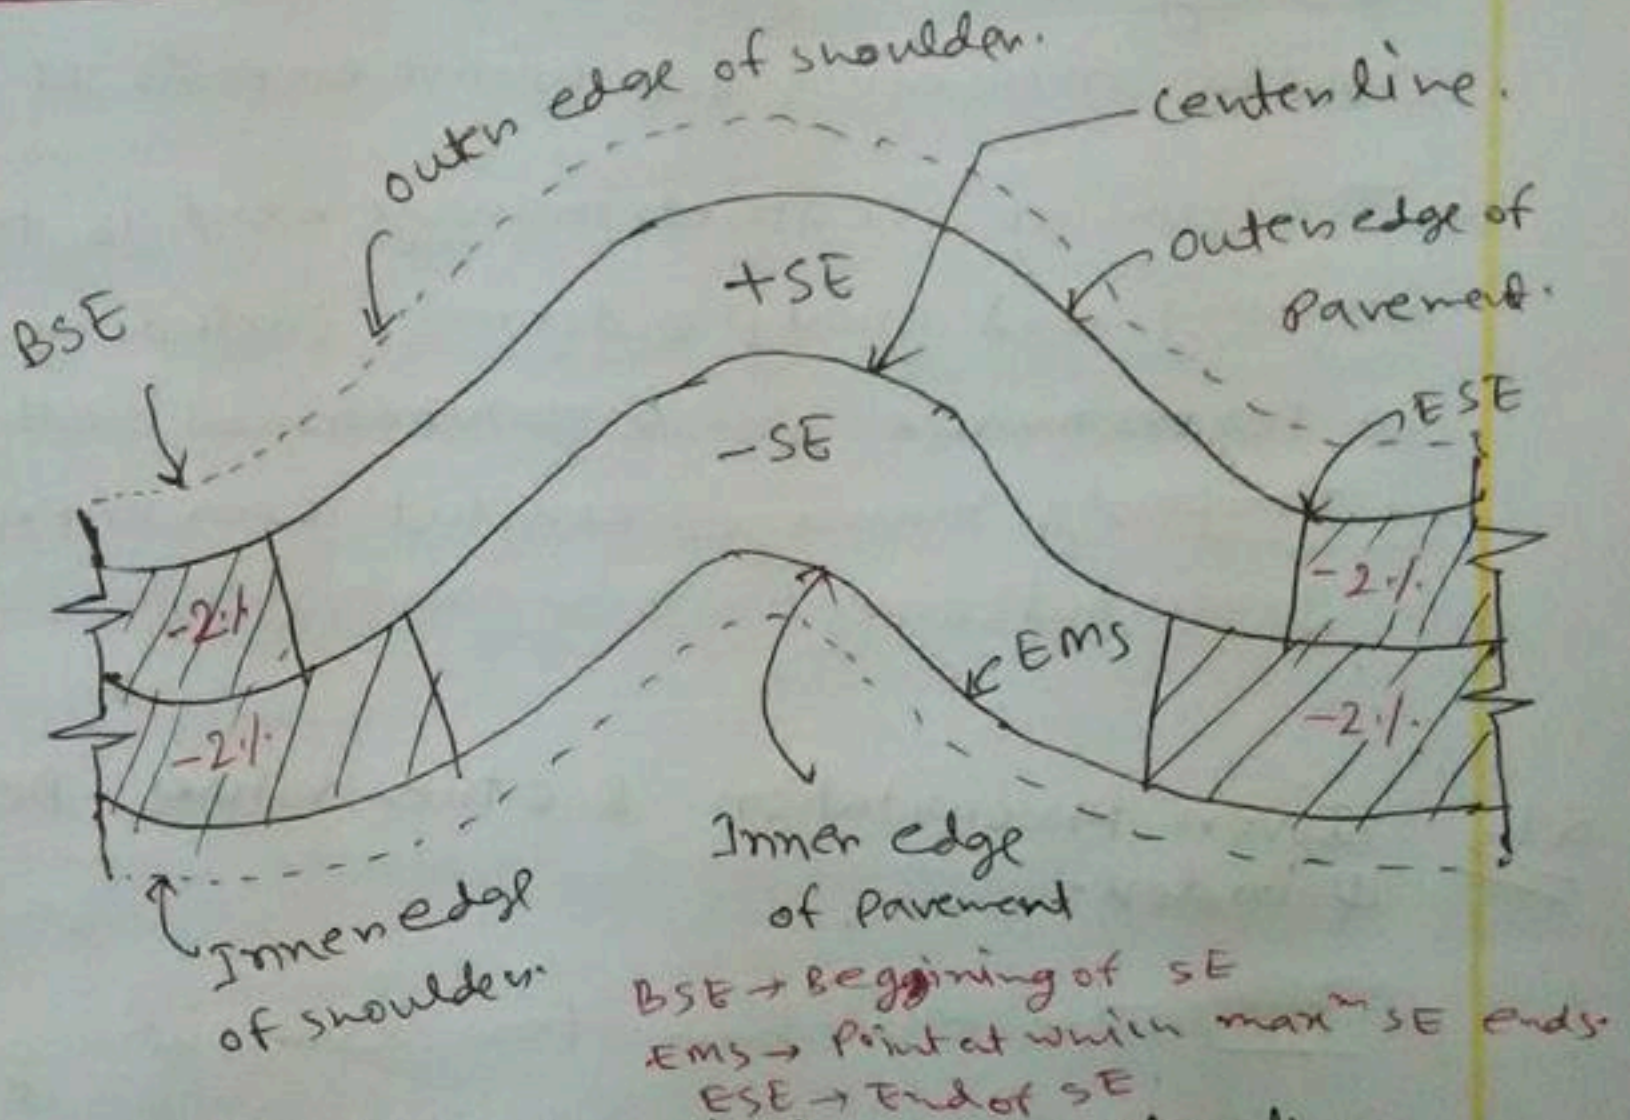 outer edge of shoulder.
centerline.
outer edge of
pavement.
BSE
+SE
-SE
ESE
-2%
-2%
-2%
-2%
EMS
Inner edge
of pavement
Inner edge
of shoulder.
BSE → Beggining of SE
EMS → Point at which maxᵐ SE ends.
ESE → End of SE